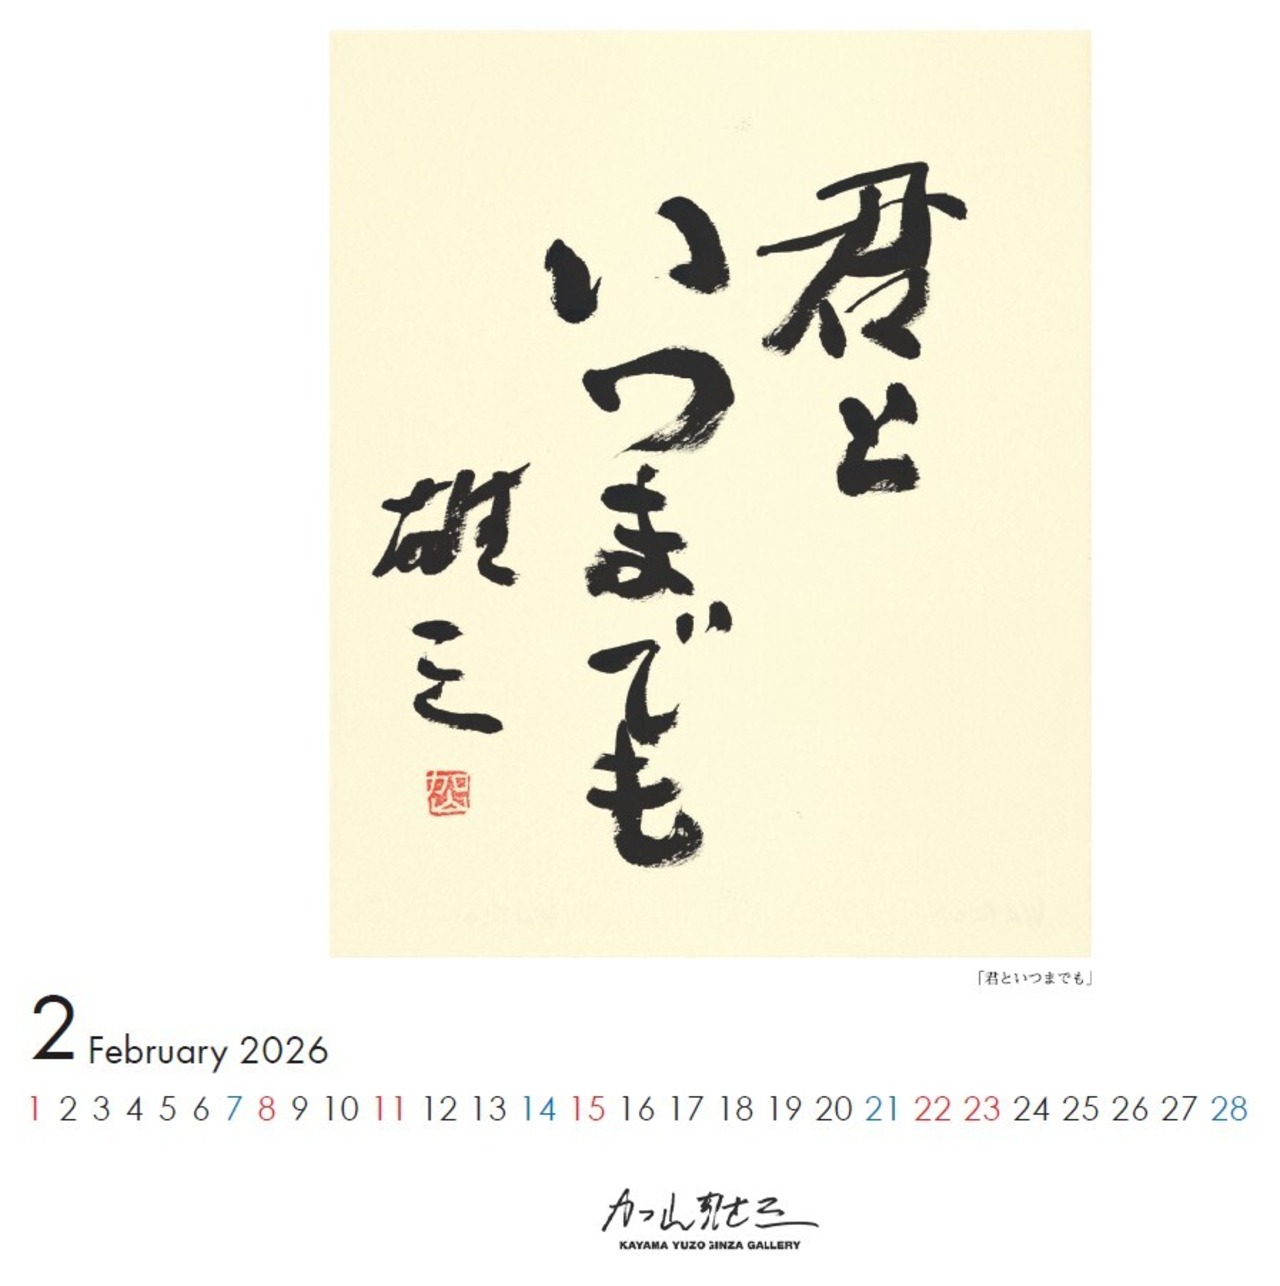 君と
いつまでも
雄三
「君といつまでも」
2 February 2026
1 2 3 4 5 6 7 8 9 10 11 12 13 14 15 16 17 18 19 20 21 22 23 24 25 26 27 28
加山雄三
KAYAMA YUZO GINZA GALLERY